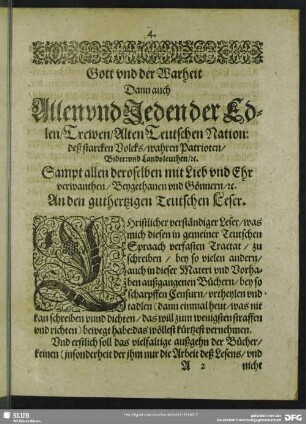 4.
Gott vnd der Warheit
Dann auch
Allen vnd Jeden der Ed-
len/Trewen/Alten Teutschen Nation:
deß starcken Volcks/wahren Patrioten/
Bider: vnd Landsleuthen/ꝛc.
Sampt allen deroselben mit Lieb vnd Ehr
verwanthen/Beygethanen vnd Gönnern/ꝛc.
An den guthertzigen Teutschen Leser.
Christlicher verständiger Leser/was
mich diesen in gemeiner Teutschen
Spraach verfasten Tractat/zu
schreiben/bey so vielen andern/
auch in dieser Materi vnd Vorha-
ben außgangenen Büchern/bey so
scharpffen Censurn/vrtheylen vnd
tadlen (dann einmal heut/was nie
kan schreiben vnnd dichten/das will zum wenigsten straffen
vnd richten) bewegt habe: das wöllest kürtzest vernehmen.
Vnd erstlich soll das vielfaltige außgehn der Bücher/
keinen (insonderheit der ihm nur die Arbeit deß Lesens/vnd
A 2 nicht
SLUB